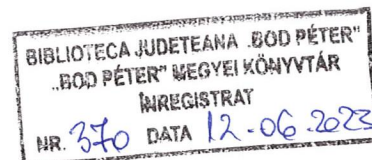 BIBLIOTECA JUDEȚEANA „BOD PÉTER"
„BOD PÉTER" MEGYEI KÖNYVTÁR
ÎNREGISTRAT
NR. 370 DATA 12.06.2023